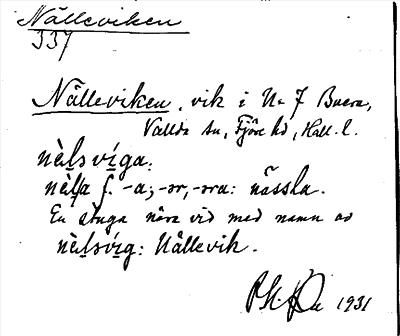 Nälleviken
337
Nälleviken, vik i N. 7 Buera,
Vallda sn, Fjäre hd, Hall. l.
nèḷsvíga:
nèḷa f. -a; -ər, -əra: nässla.
En stuga nära vid med namn av
nèḷsvíg: Nällevik.
1931